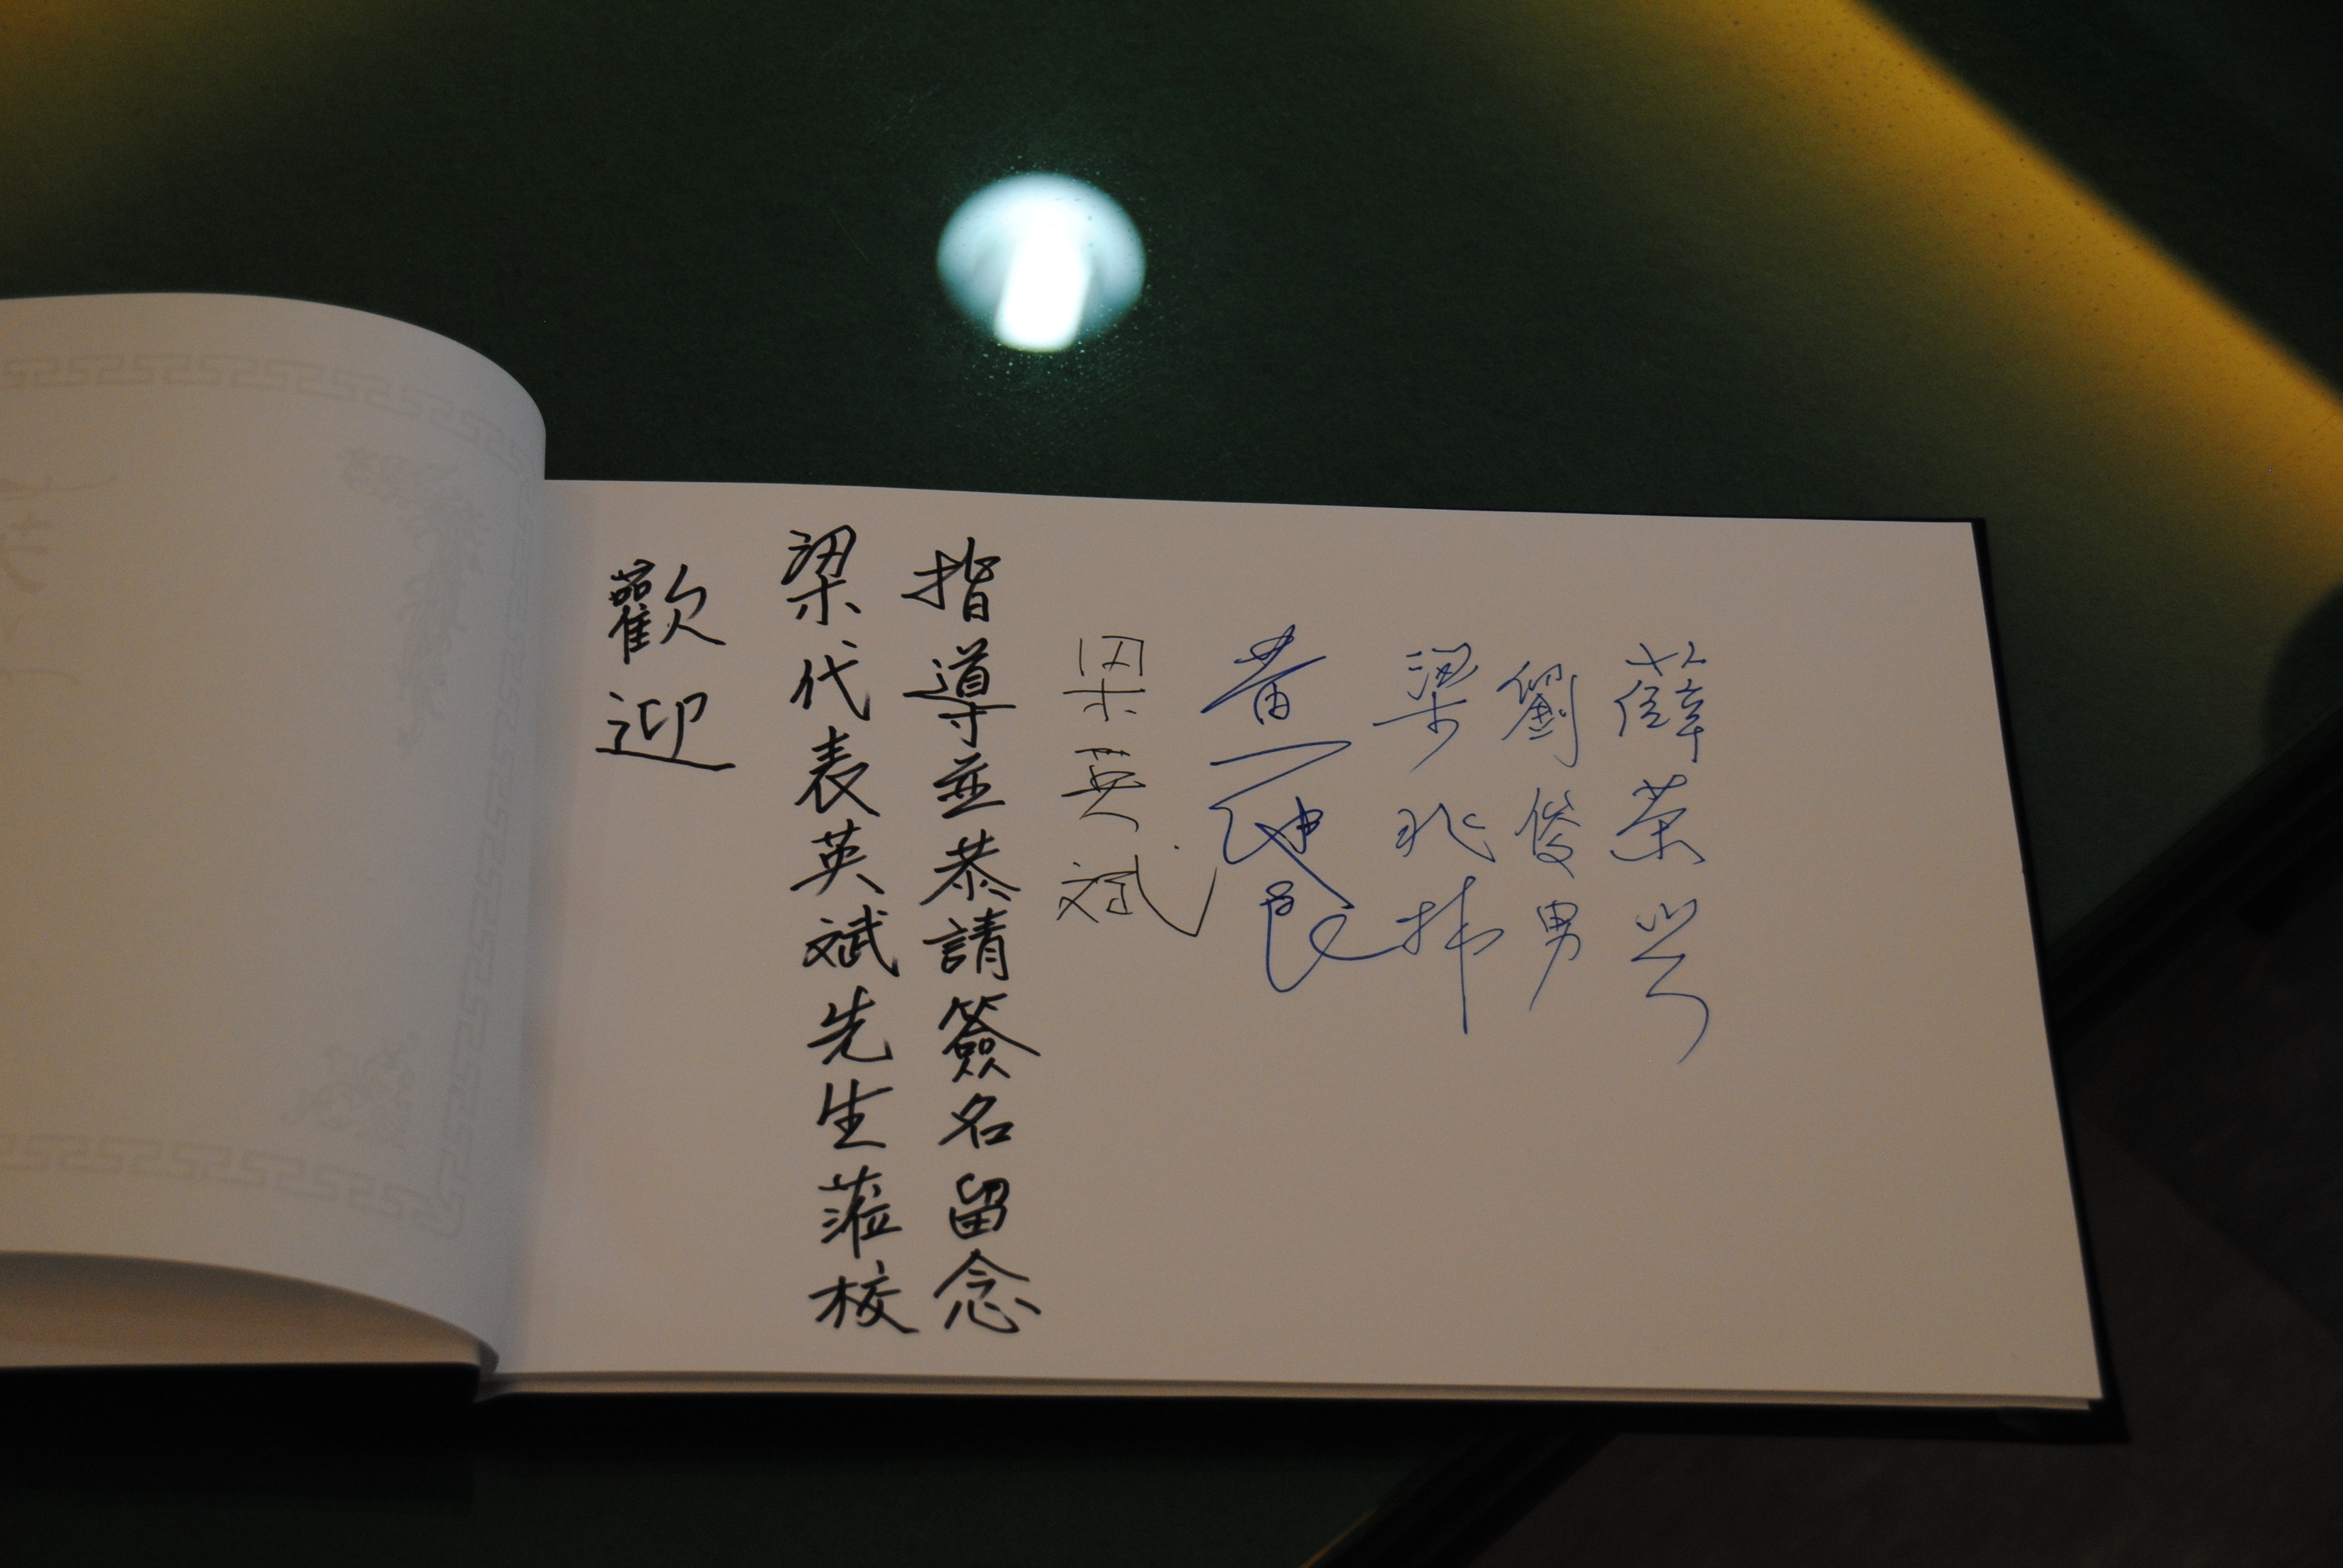 歡迎
梁代表英斌先生蒞校
指導並恭請簽名留念
梁英斌
黃
梁兆
劉俊男
薛榮